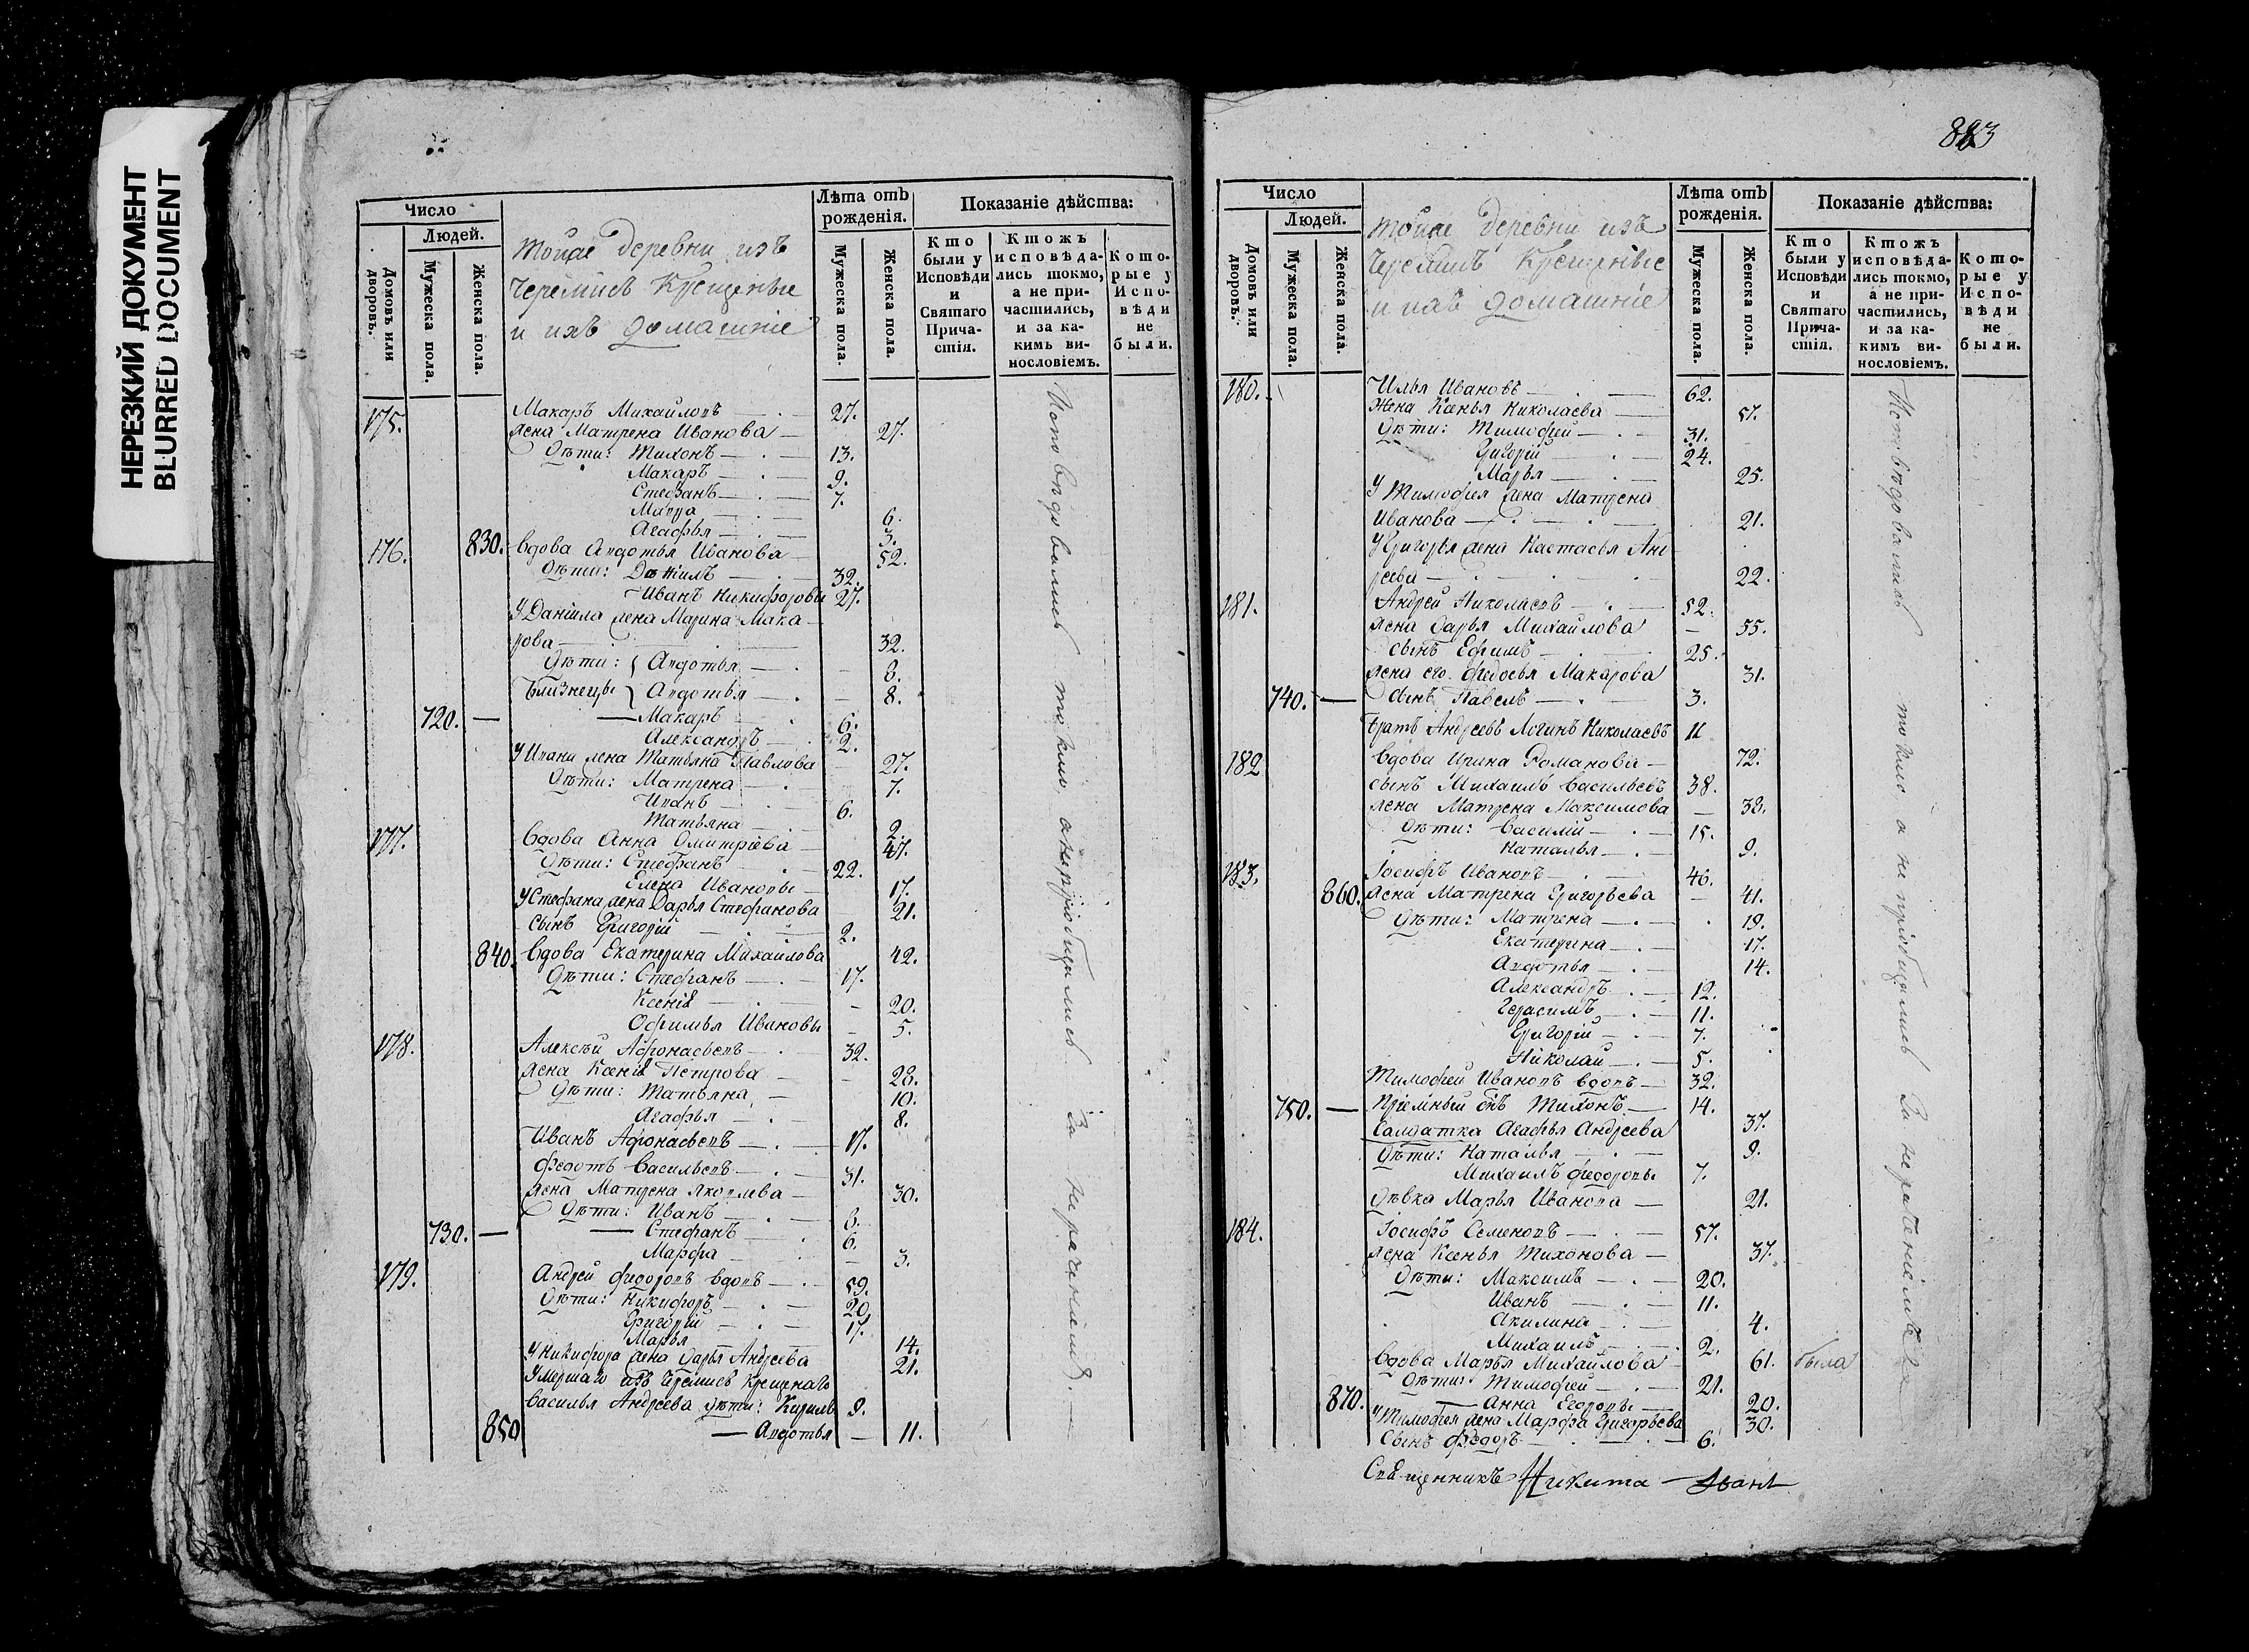 НЕРЕЗКИЙ ДОКУМЕНТ
BLURRED DOCUMENT
Число
Людей.
Домовъ или дворовъ.
Мужеска пола.
Женска пола.
тойже деревни изъ
Черемисъ Крещеные
и ихъ домашніе
Лѣта отъ рожденія.
Мужеска пола.
Женска пола.
Показаніе дѣйства:
Кто были у Исповѣди и Святаго Прича-стія.
Ктожъ исповѣда-лись токмо, а не при-частились, и за ка-кимъ ви-нословіемъ.
Кото-рые у Испо-вѣди не были.
175. Макаръ Михайловъ 27.
жена Матрена Иванова 27.
Дѣти: Тихонъ 13.
Макаръ 9.
Стефанъ 7.
6.
Агафья 3.
176. 830. вдова Авдотья Иванова 52.
Дѣти: 32.
Иванъ Никифоровы 27.
У Даніила жена Марина Мака
рова 32.
Дѣти: { Авдотья 8.
Близнецы } Авдотья 8.
720. — Макаръ 6.
Александръ 2.
У Ивана жена Татьяна Павлова 27.
Дѣти: Матрена 7.
Иванъ 6.
Татьяна 2.
177. вдова Анна Дмитріева 47.
Дѣти: Стефанъ 22.
Елена Ивановы 17.
У Стефана жена Дарья Стефанова 21.
Сынъ Григорій 2.
840. вдова Екатерина Михайлова 42.
Дѣти: Стефанъ 17.
Ксенія 20.
Офимья Ивановы 5.
178. Алексѣй Афонасьевъ 32.
жена Ксенія Петрова 28.
Дѣти: Татьяна 10.
Агафья 8.
Иванъ Афонасьевъ 17.
Федотъ Васильевъ 31.
жена Матрена Яковлева 30.
Дѣти: Иванъ 8.
730. — Стефанъ 6.
Марфа 3.
179. Андрей Федоровъ вдовъ 59.
Дѣти: Никифоръ 20.
Григорій 17.
Марья 14.
У Никифора жена Дарья Андреева 21.
Умершаго изъ Черемисъ крещенаго
Василья Андреева дѣти: Кирилъ 9.
850 — Авдотья — 11.
Исповѣдовались токмо а не пріобщились За нераченіемъ.
883
Число
Людей.
Домовъ или дворовъ.
Мужеска пола.
Женска пола.
тойже деревни изъ
Черемисъ Крещеные
и ихъ домашніе
Лѣта отъ рожденія.
Мужеска пола.
Женска пола.
Показаніе дѣйства:
Кто были у Исповѣди и Святаго Прича-стія.
Ктожъ исповѣда-лись токмо, а не при-частились, и за ка-кимъ ви-нословіемъ.
Кото-рые у Испо-вѣди не были.
180. Илья Ивановъ 62.
Жена Ксенья Николаева 57.
Дѣти: Тимофей 31.
Григорій 24.
Марья 25.
У Тимофея жена Матрена
Иванова 21.
У Григорья жена Настасья Анд
реева 22.
181. Андрей Николаевъ 52.
жена Дарья Михайлова 55.
сынъ Ефимъ 25.
жена его Федосья Макарова 31.
740. — сынъ Павелъ 3.
Братъ Андреевъ Логинъ Николаевъ 11
182 вдова Ирина Романова 72.
сынъ Михаилъ Васильевъ 38.
жена Матрена Максимова 38.
Дѣти: Василій 15.
Наталья 9.
183. Іосифъ Ивановъ 46.
860. жена Матрена Григорьева 41.
Дѣти: Матрена 19.
Екатерина 17.
Авдотья 14.
Александръ 12.
Герасимъ 11.
Григорій 7.
Николай 5.
Тимофей Ивановъ вдовъ 32.
750. — Пріемный сынъ Тихонъ 14.
Салдатка Агафья Андреева 37.
Дѣти: Наталья 9.
Михаилъ Федоровы 7.
Дѣвка Марья Иванова 21.
184. Іосифъ Семеновъ 57.
жена Ксенья Тихонова 37.
Дѣти: Максимъ 20.
Иванъ 11.
Акилина 4.
Михаилъ 2.
вдова Марья Михайлова 61. была
Дѣти: Тимофей 21.
870. — Анна Егоровы 20.
У Тимофея жена Марфа Григорьева 30.
Сынъ Федоръ 6.
Исповѣдовались токмо а не пріобщились За нераченіемъ
Священникъ Никита